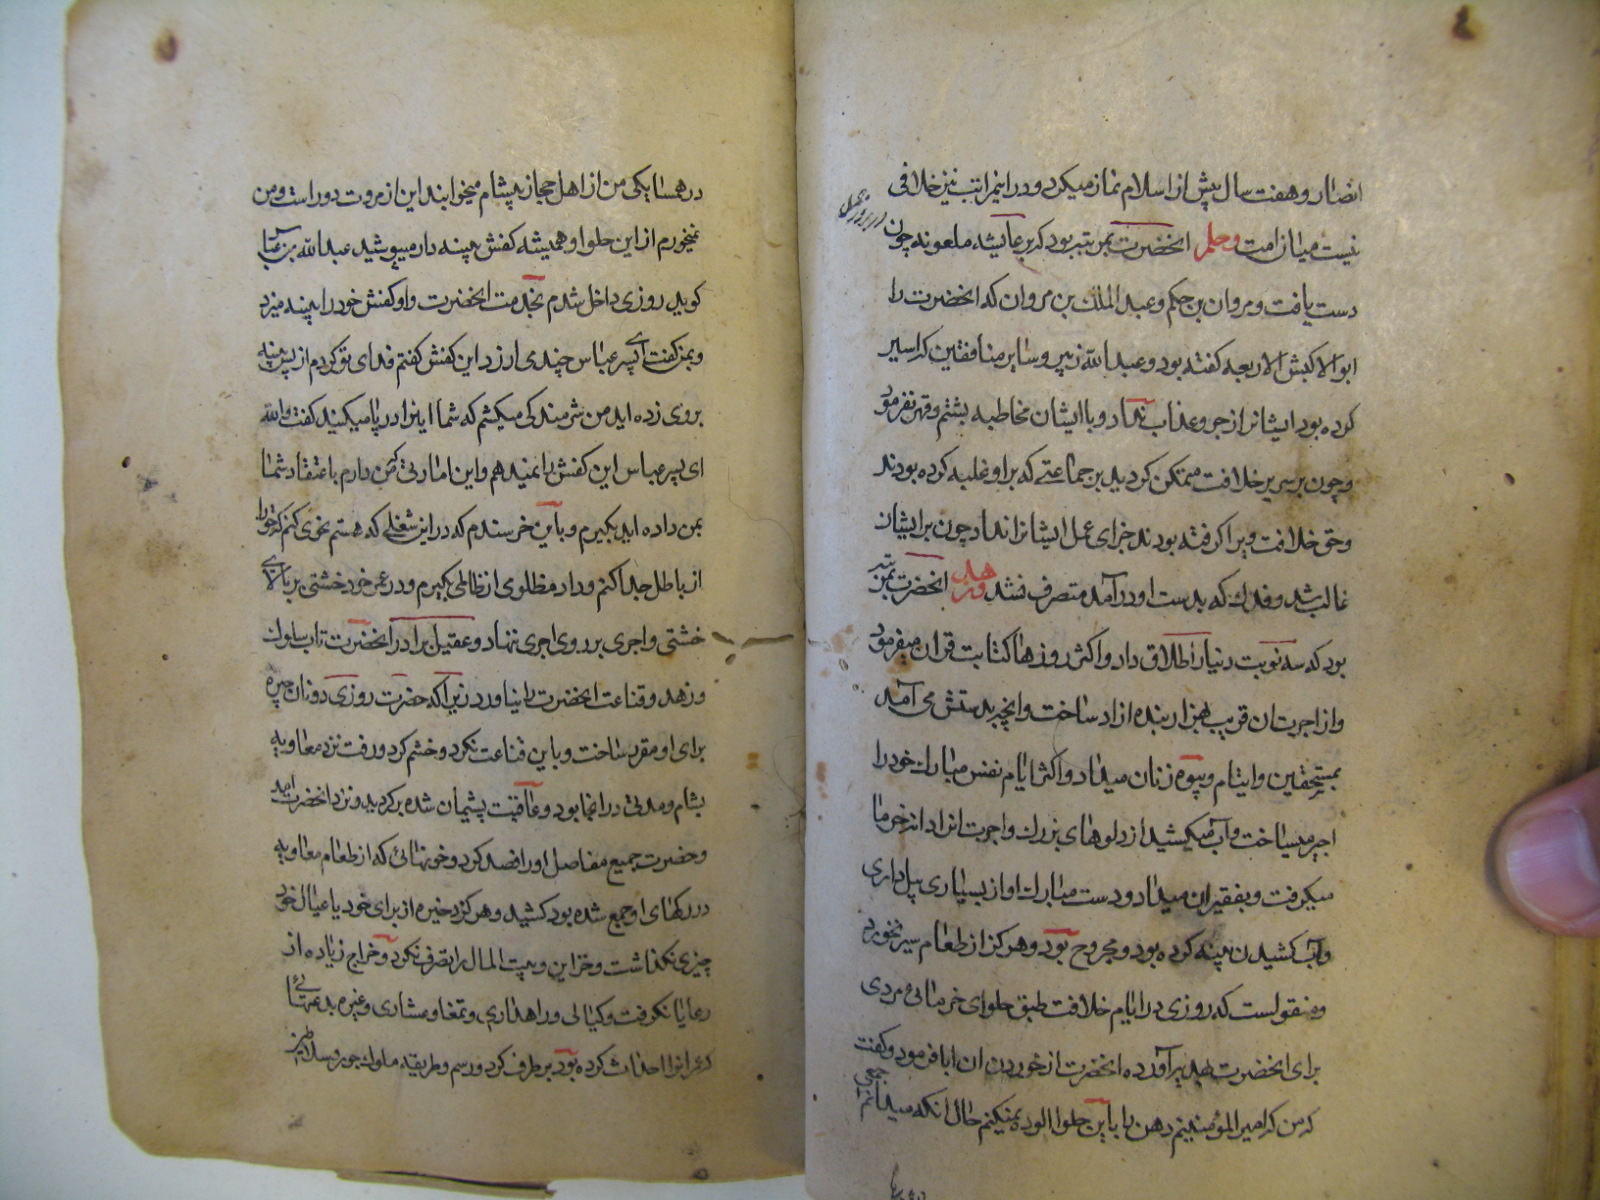 انصار و هفت سال پیش از اسلام نماز میکرد و در اینمراتب نیز خلافی
در روز جمل
نیست میان امت وحلم انحضرت بمرتبه بود که بر عایشه ملعونه چون
دست یافت و مروان بن حکم و عبد الملک بن مروان که انحضرت را
ابو الاکبش الاربعه کفته بود و عبد الله زبیر و سایر منافقین که اسیر
کرده بود ایشانرا زجر و عذاب نداد و با ایشان مخاطبه بشتم و قهر نفرمود
و چون بر سریر خلافت متمکن کردید بر جماعتی که بر او غلبه کرده بودند
و حق خلافت ویرا کرفته بودند جزای عمل ایشانرا نداد چون بر ایشان
غالب شد و فدک که بدست او در آمد متصرف نشد وزهد انحضرت بمرتبه
بود که سه نوبت دنیا را طلاق داد و اکثر روزها کتابت قران میفرمود
و از اجرت ان قریب بهزار بنده ازاد ساخت و انچه بدستش می آمد
بمستحقین و ایتام و بیوه زنان میداد و اکثر ایام نفس مبارک خود را
اجیر میساخت و آب میکشید از دلوهای بزرک و اجرت انرا دانه خرما
میکرفت و بفقیران میداد و دست مبارک او از بسیاری بیل داری
و آب کشیدن پینه کرده بود و مجروح بود و هرکز از طعام سیر نخورد
و منقولست که روزی در ایام خلافت طبق حلوای خرمائی مردی
برای انحضرت هدیه آورده انحضرت از خوردن ان ابا فرمود و کفت
که من که امیر المؤمنینم دهن را باین حلوا الوده نمیکنم حال انکه میدانم جمعی
در همسایکی من از اهل حجاز به پشام میخوابند این از مروت دور است و من
نمیخورم از این حلوا و همیشه کفش پینه دار میپوشید عبد الله بن عباس
کوید روزی داخل شدم بخدمت انحضرت و او کفش خود را پینه میزد
و بمن کفت ای پسر عباس چند می ارزد این کفش کفتم فدای تو کردم از بس پینه
بروی زده اید من شرمندکی میکشم که شما اینرا در پا میکنید کفت والله
ای پسر عباس این کفش را نمیدهم و این امارتی که من دارم باعتقاد شما
بمن داده اید بکیرم و باین خرسندم که در این شغلی که هستم نحوی کنم که حق را
از باطل جدا کنم و داد مظلوی از ظالمی بکیرم و در عمر خود خشتی بر بالای
خشتی و اجری بر روی اجری ننهاد و عقیل برادر انحضرت تاب سلوک
و زهد و قناعت انحضرت را نیاورد زیرا که حضرت روزی دو نان جیره
برای او مقرر ساخت و باین قناعت نکرد و خشم کرد و رفت نزد معاویه
بشام و مدتی در انجا بود و عاقبت پشیمان شده برکردید و نزد انحضرت امد
و حضرت جمیع مفاصل او را فصد کرد و خونهائی که از طعام معاویه
در رکهای او جمع شده بود کشید و هرکز ذخیره از برای خود یا عیال خود
چیزی نکذاشت و خزاین و بیت المال را تصرف نکرد و خراج زیاده از
رعایا نکرفت و کیالی و راهداری و تمغا و عشاری و غیره بدعتهائی
که عمر انرا احداث کرده بود بر طرف کرد و رسم و طریقه ملوک جور و سلاطین